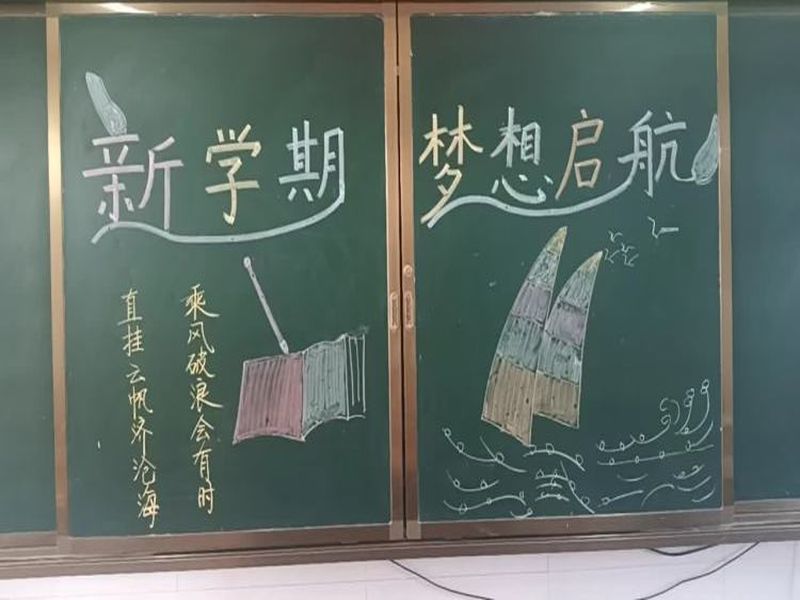 新学期
梦想启航
乘风破浪会有时
直挂云帆济沧海